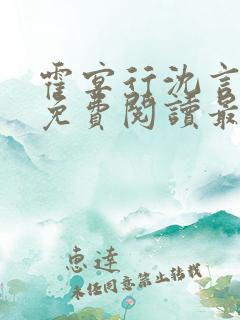 霍宴行沈言
免費閱讀最
惠達
未经同意禁止转载